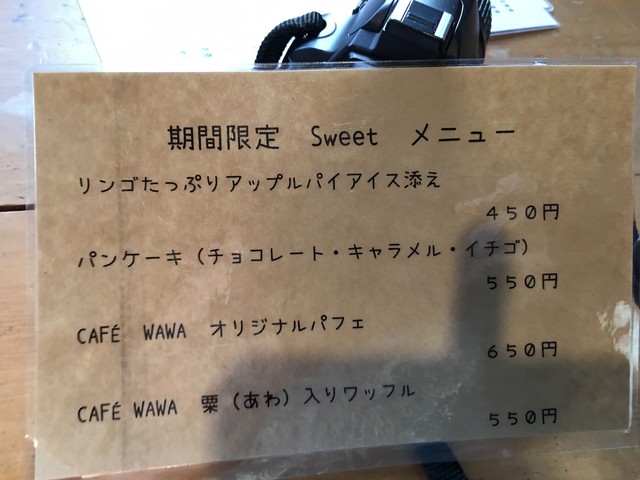 期間限定 Sweet メニュー
リンゴたっぷりアップルパイアイス添え
450円
パンケーキ（チョコレート・キャラメル・イチゴ）
550円
CAFÉ WAWA オリジナルパフェ
650円
CAFÉ WAWA 粟（あわ）入りワッフル
550円